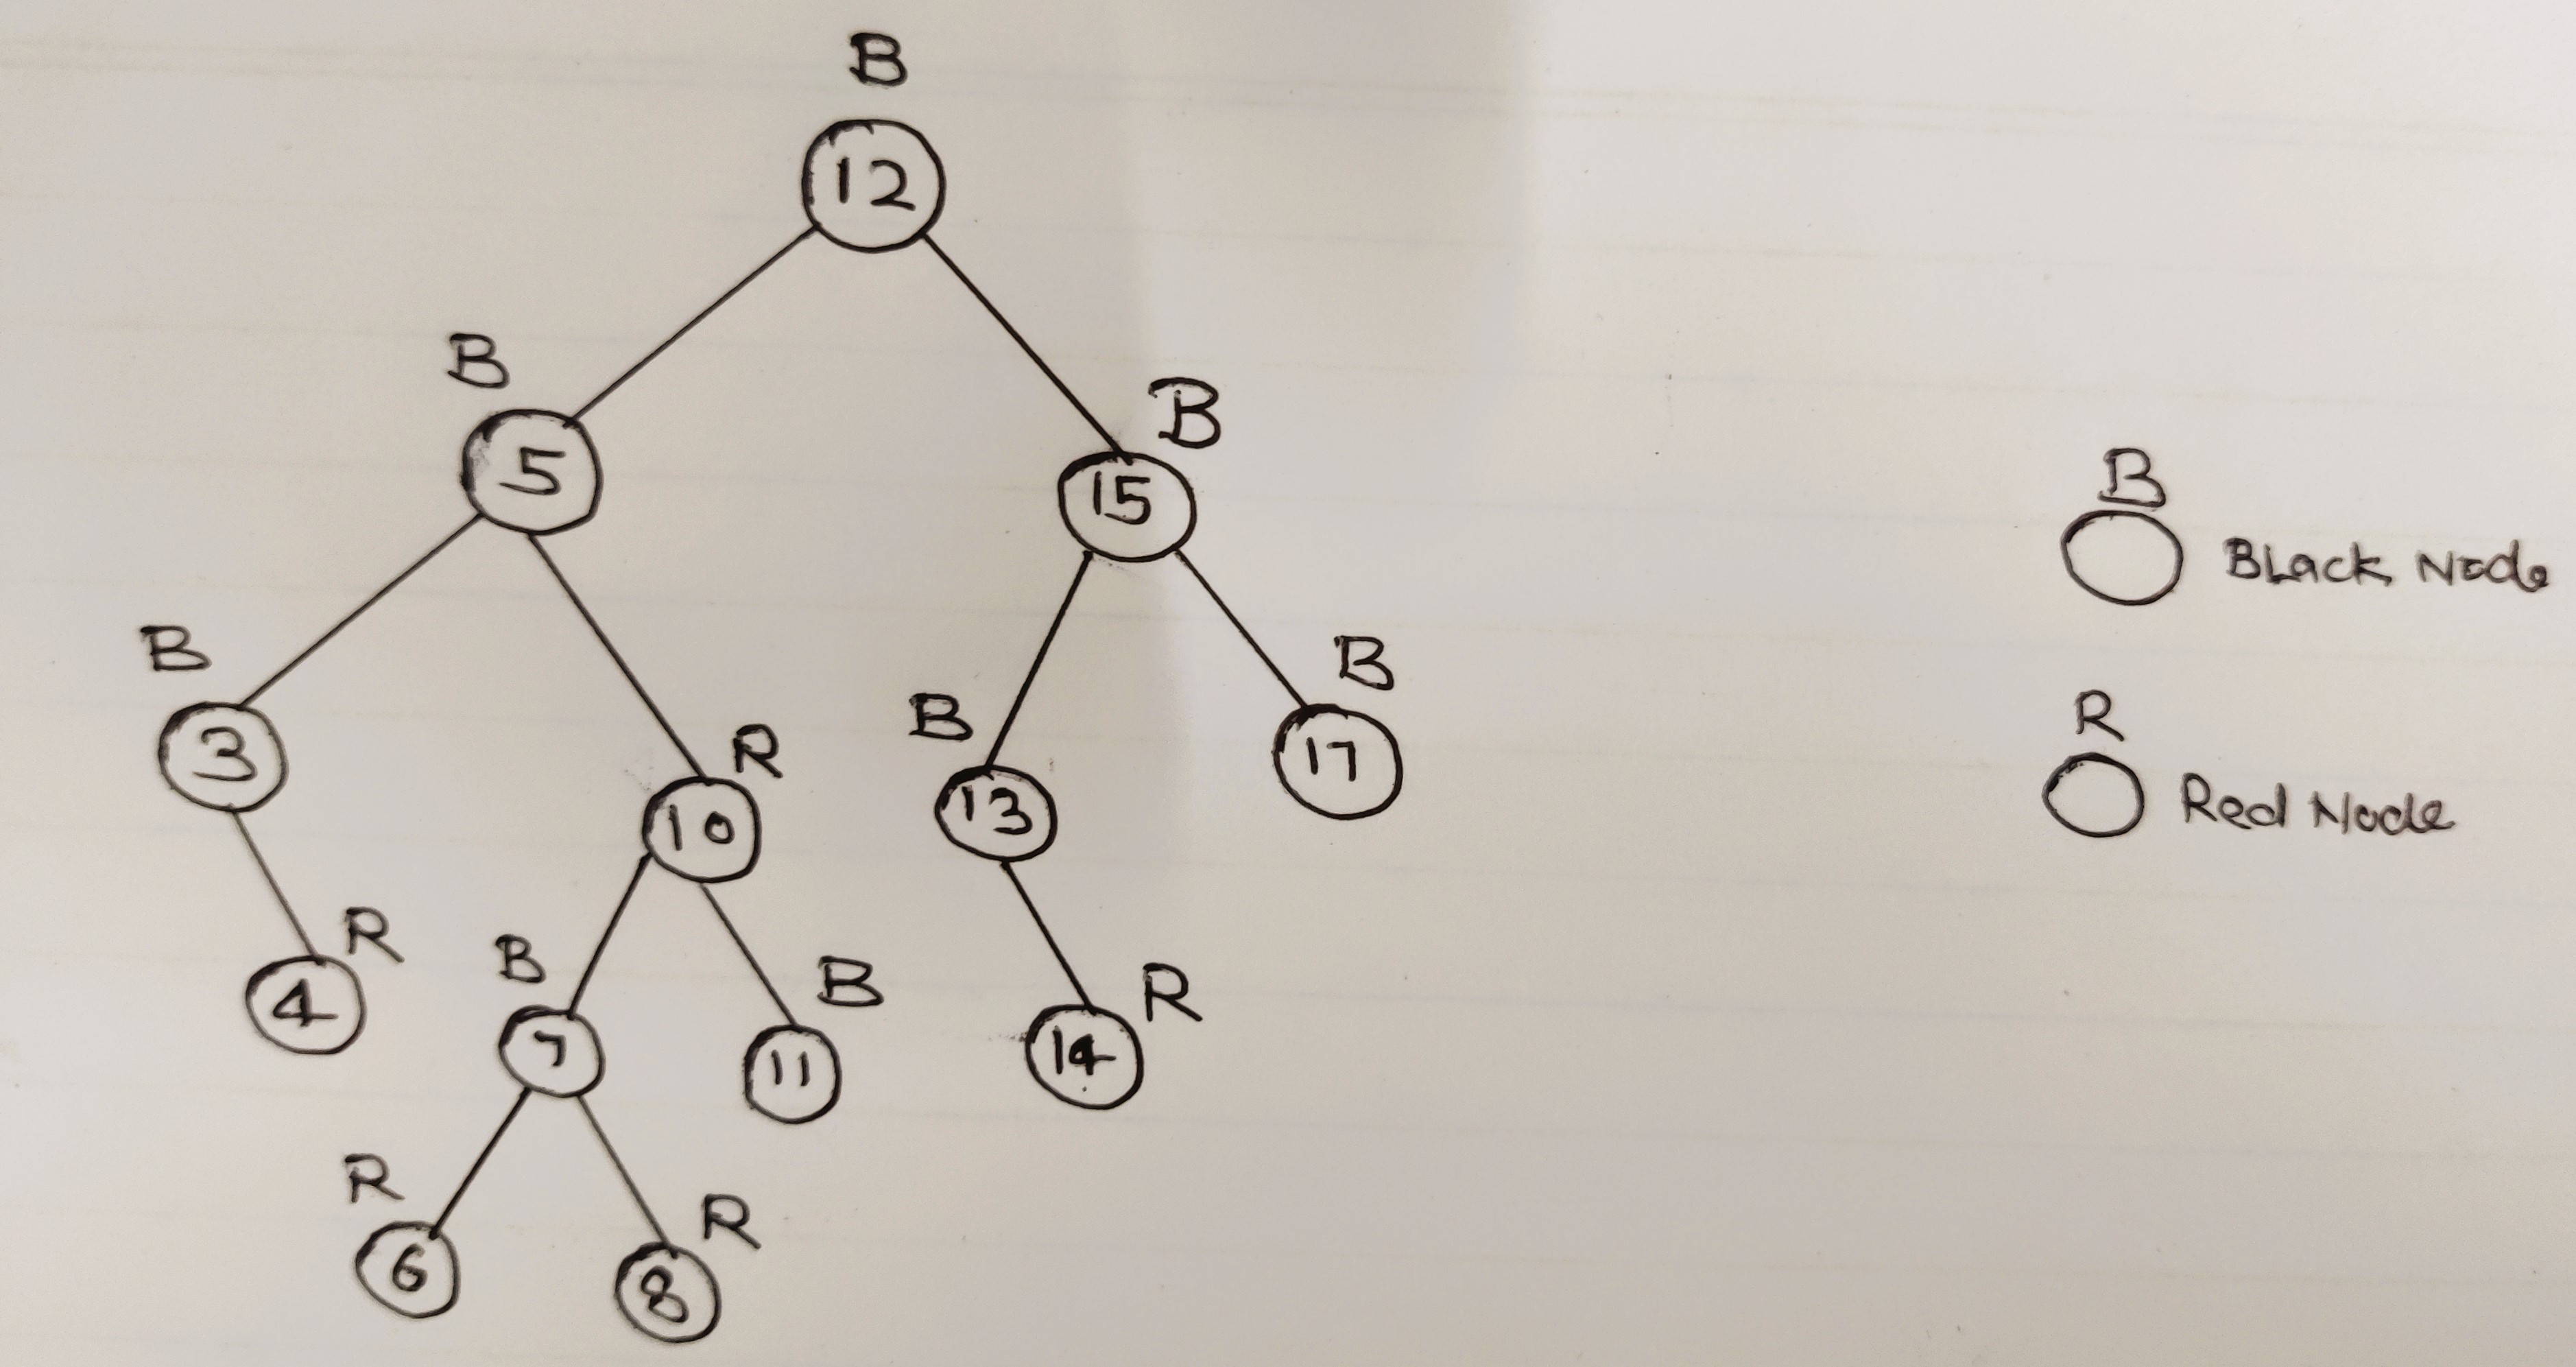 B
12
B
5
B
15
B
3
R
10
B
13
B
17
R
4
B
7
B
11
R
14
R
6
R
8
B
BLack Node
R
Red Node